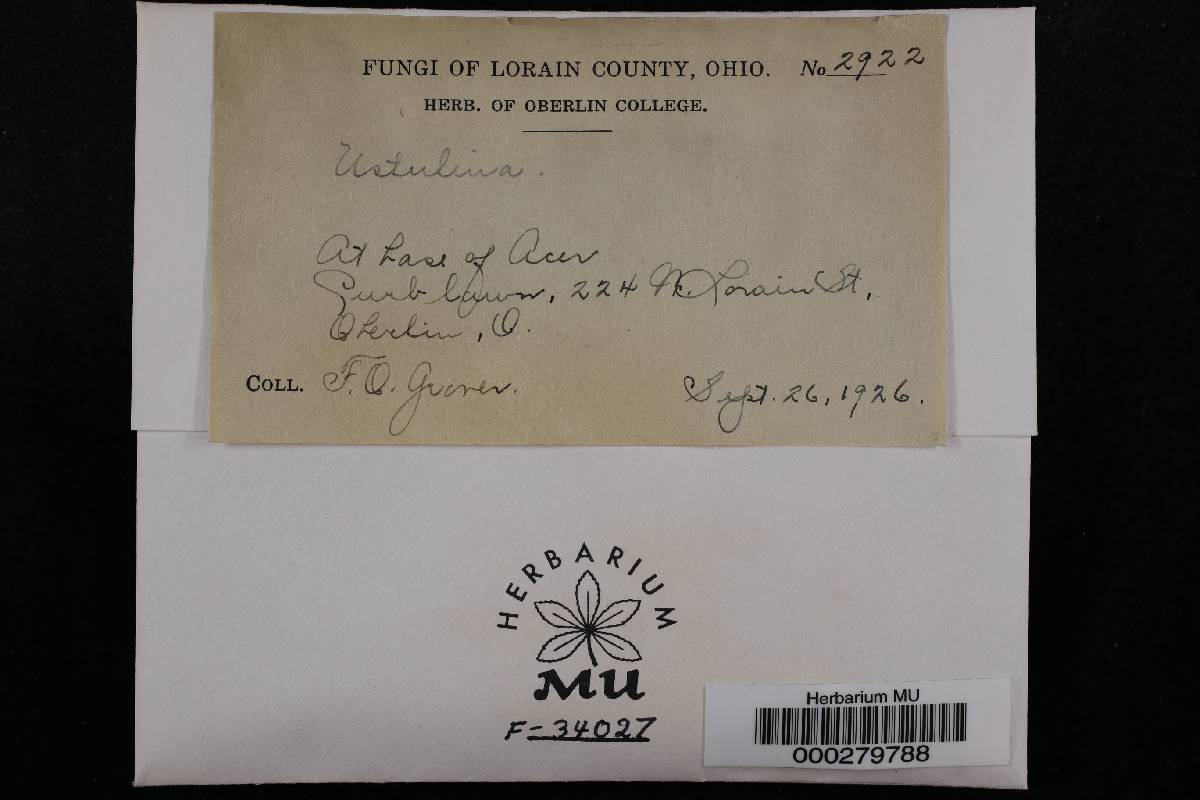 FUNGI OF LORAIN COUNTY, OHIO. No 2922
HERB. OF OBERLIN COLLEGE.
Ustulina.
At base of Acer
Curb lawn, 224 W. Lorain St,
Oberlin, O.
COLL. F. O. Grover. Sept. 26, 1926.
HERBARIUM
MU
F-34027
Herbarium MU
000279788